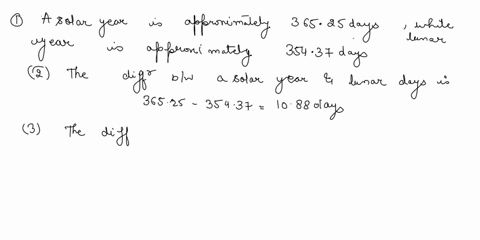 ① A solar year is approximately 365.25 days , white lunar
year is approximately 354.37 days
(2) The diffr b/w a solar year & lunar days is
365.25 - 354.37 = 10.88 days
(3) The diff